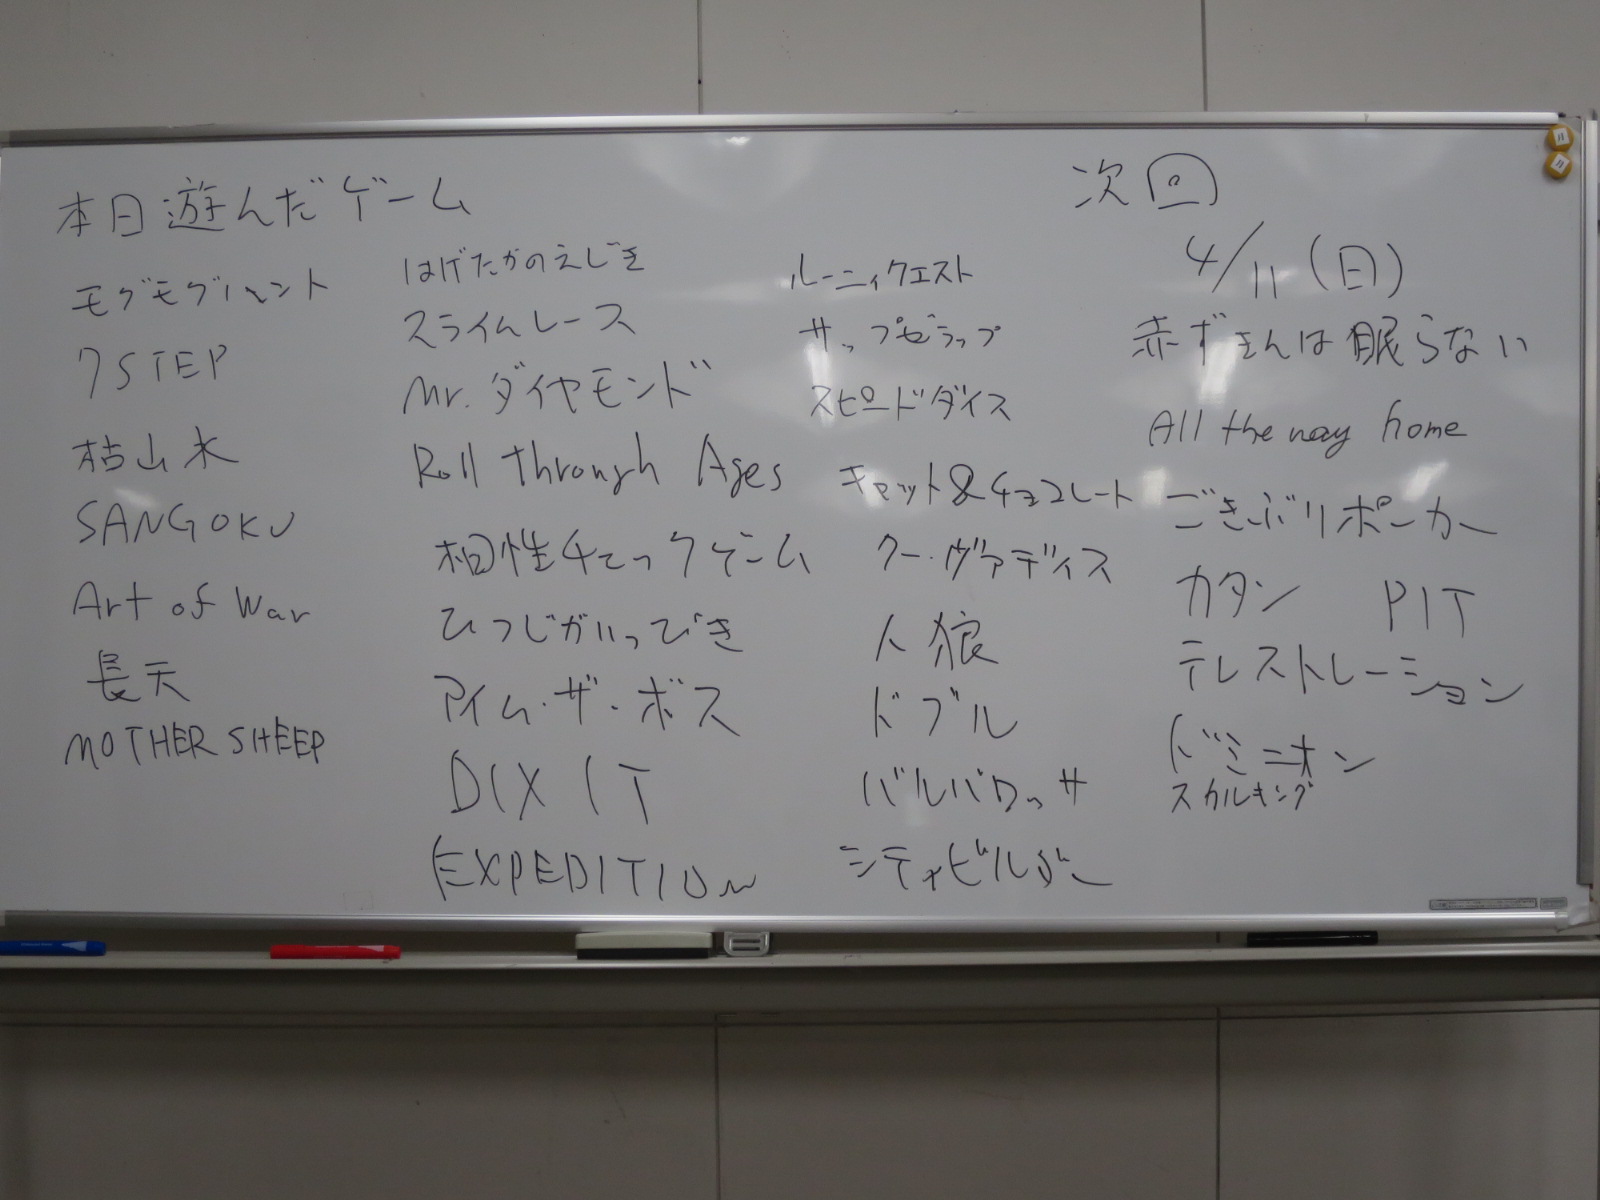 本日遊んだゲーム
モグモグハント
7STEP
枯山水
SANGOKU
Art of War
長天
MOTHER SHEEP
はげたかのえじき
スライムレース
Mr.ダイヤモンド
Roll through Ages
相性チェックゲーム
ひつじがいっぴき
アイム・ザ・ボス
DIXIT
EXPEDITION
ルーニィクエスト
サップゼラップ
スピードダイス
キャット&チョコレート
クー・ヴァディス
人狼
ドブル
バルバロッサ
シティビルダー
次回
4/11(日)
赤ずきんは眠らない
All the way home
ごきぶりポーカー
カタン PIT
テレストレーション
ドミニオン
スカルキング